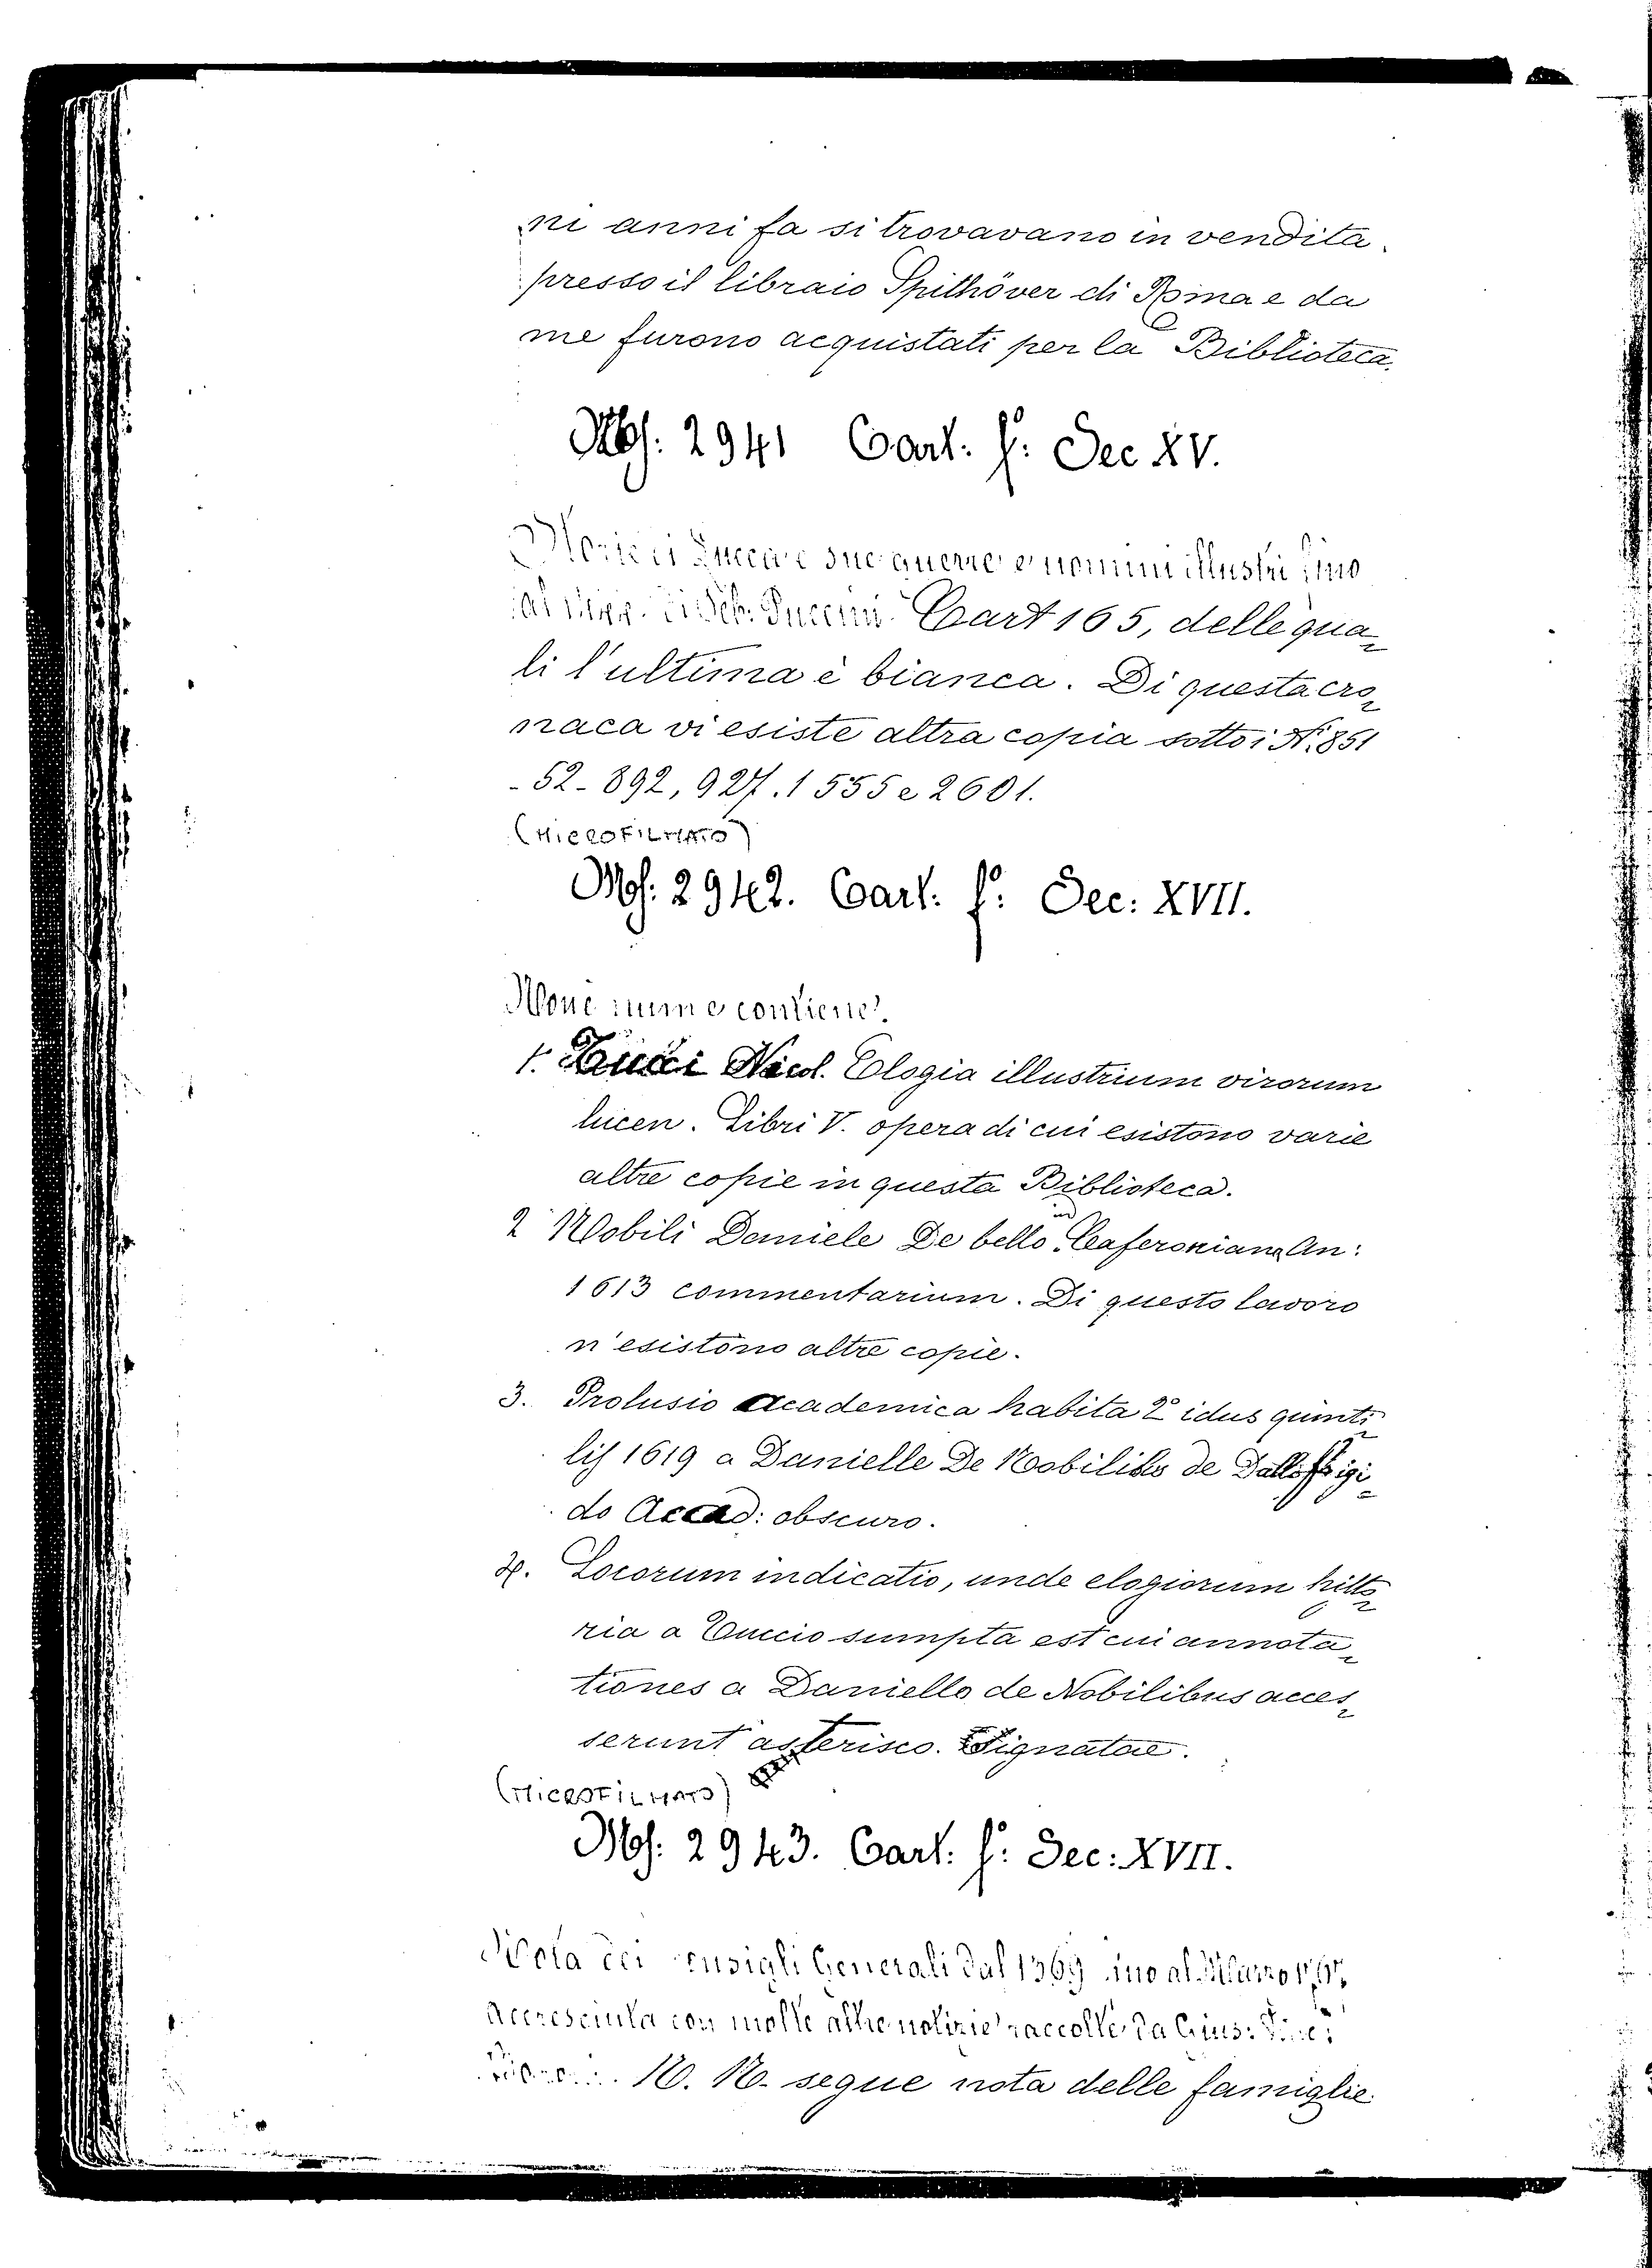 ni anni fa si trovavano in vendita
presso il libraio Spithöver di Roma e da
me furono acquistati per la Biblioteca.
Ms. 2941 Cart. f. Sec XV.
sue guerre e uomini illustri fino
al Cart 165, delle qua
li l'ultima è bianca. Di questa cro
naca vi esiste altra copia sotto i N. 851
-52-892, 927. 1555 e 2601.
(MICROFILMATO)
Ms. 2942. Cart. f. Sec: XVII.
contiene
1. Nicol. Elogia illustrium virorum
lucen. Libri V. opera di cui esistono varie
altre copie in questa Biblioteca.
2 Nobili Daniele De bello Caferoniana An:
1613 commentarium. Di questo lavoro
n'esistono altre copie.
3. Prolusio Academica habita 2° idus quinti
lis 1619 a Danielle De Nobilibus de
do Accad: obscuro.
4. Locorum indicatio, unde elogiorum histo
ria a Tuccio sumpta est cui annota
tiones a Daniello de Nobilibus acces
serunt asterisco Signatae.
(MICROFILMATO)
Ms. 2943. Cart. f. Sec: XVII.
Nota dei Consigli Generali dal 1369 fino al Marzo
Accresciuta con molte altre notizie raccolte da Gius:
N. N. segue nota delle famiglie